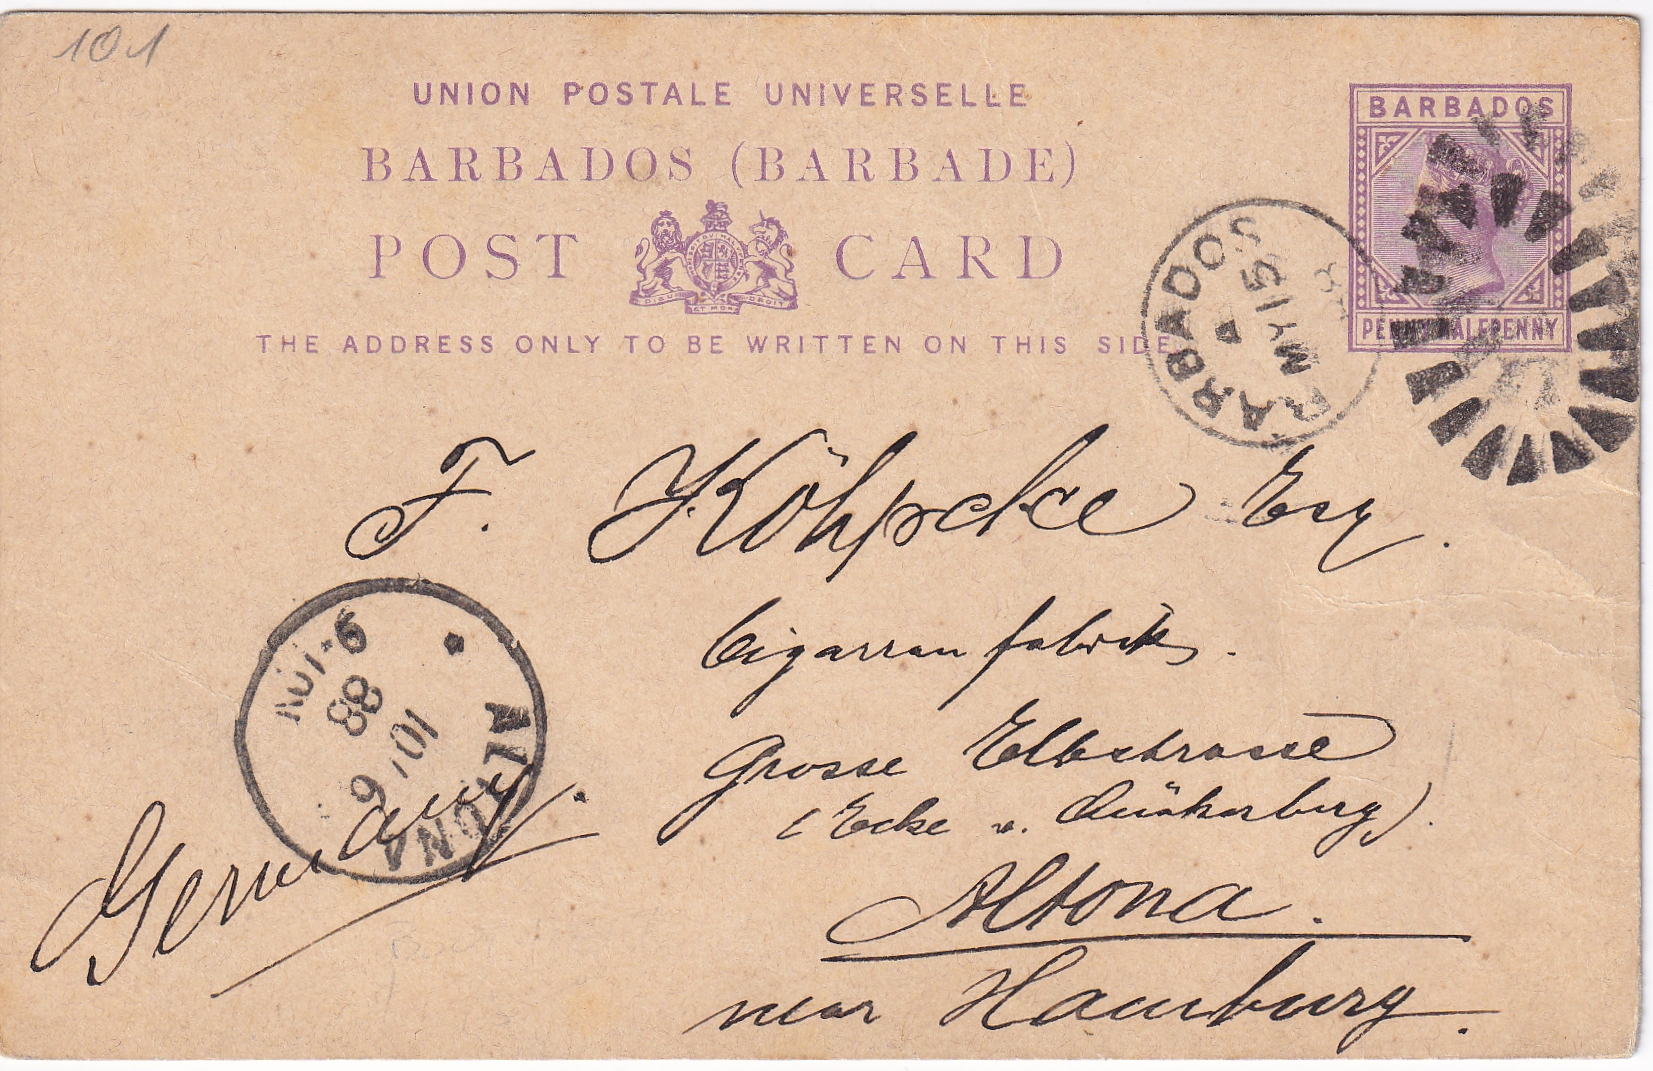 101
UNION POSTALE UNIVERSELLE
BARBADOS (BARBADE)
POST CARD
DIEU ET MON DROIT
THE ADDRESS ONLY TO BE WRITTEN ON THIS SIDE
BARBADOS
PENNY HALFPENNY
BARBADOS
A
MY 15
F. Köhpcke Esq.
Cigarrenfabrik.
Grosse Elbstrasse
(Ecke v.
Altona.
near Hamburg.
Germany.
ALTONA
10/6
88
6-7